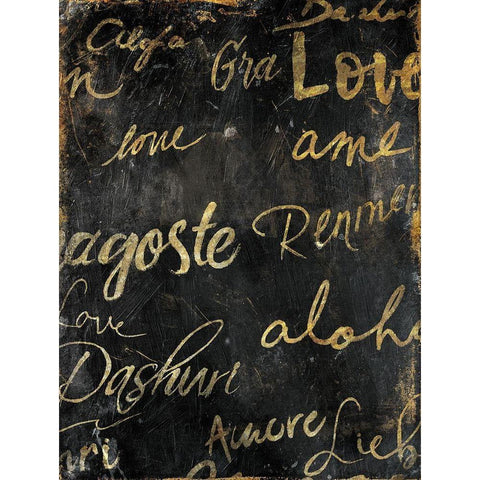 Da
n Gra Love
love ame
agoste Renmen
Love aloh
Dashuri
Amore Lieb
uri